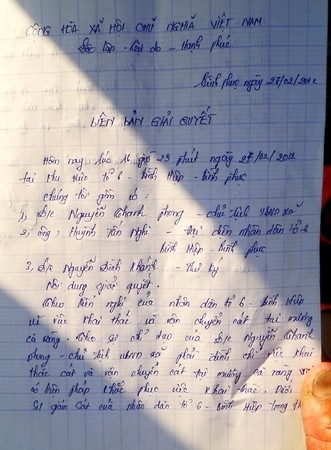 CỘNG HÒA XÃ HỘI CHỦ NGHĨA VIỆT NAM
Độc lập - tự do - Hạnh phúc
Bình phục ngày 27/02/2012
BIÊN BẢN GIẢI QUYẾT
Hôm nay, lúc 16 giờ 23 phút ngày 27/02/2012
tại khu vực tổ 6 - Bình Hiệp - Bình phục
Chúng tôi gồm có:
1) Đ/c Nguyễn Thanh phong - chủ tịch UBND xã
2) ông: Huỳnh Tấn Nghi - đại diện nhân dân tổ 6
Bình Hiệp - Bình phục
3, Đ/c Nguyễn Đình Khánh - Thư ký
Nội dung giải quyết.
Theo kiến nghị của nhân dân tổ 6 - Bình Hiệp
về việc khai thác và vận chuyển cát tại mương
cà rang. Theo sự chỉ đạo của Đ/c Nguyễn Thanh
phong - chủ tịch UBND xã phải đình chỉ việc khai
thác cát và vận chuyển cát tại mương cà rang và
có biện pháp khắc phục việc khai thác. Dưới
sự giám sát của nhân dân tổ 6 - Bình Hiệp trong